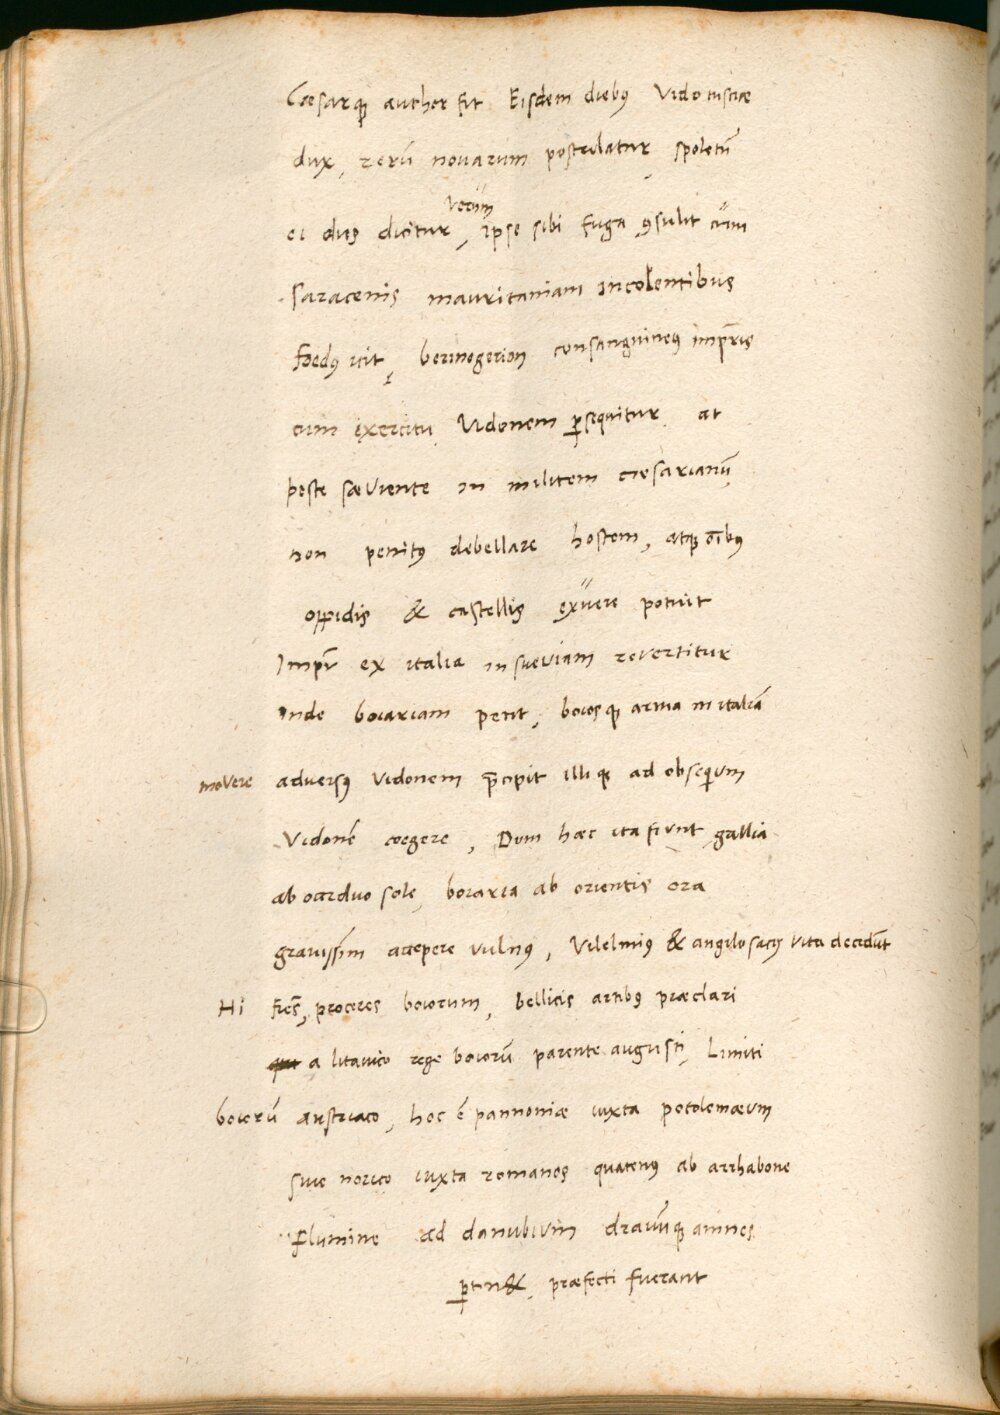 Cæsarqꝫ author fit Eisdem diebꝰ Vido tusciæ
dux, rerū novarum postulatur, spoletū
ei dies dicitur, verum ipse sibi fuga ꝯsulit cum
saracenis mauritaniam incolentibus
foedꝰ icit, berinogerion consanguineꝰ imp̄ris
cum exercitu Udonem ꝑsequitur, at
peste sæviente in militem cæsarianū
non penitꝰ debellare hostem, atqꝫ oībꝰ
oppidis & castellis exuere potuit
Imp̄r ex italia in sueviam revertitur
Inde boiariam petit, boiosqꝫ arma in italiā
movere adversꝰ vidonem p̄cipit illiqꝫ ad obsequium
Vidonē coegere, Dum hæc ita fiunt gallia
ab occiduo sole, boiaria ab orientis ora
gravissīm accepere vulnꝰ, Vilelmiꝰ & angilo sacꝫ vita decidūt
Hi frēs, proceres boiorum, bellicis artibꝰ præclari
a litavico rege boiorū parente augusti, Limiti
boiorū austriaco, hoc ē pannoniæ iuxta ptolemæum
sive norico iuxta romanos quatenꝰ ab arrhabone
flumine ad danubium dravūqꝫ amnes
ꝑtin&, præfecti fuerant